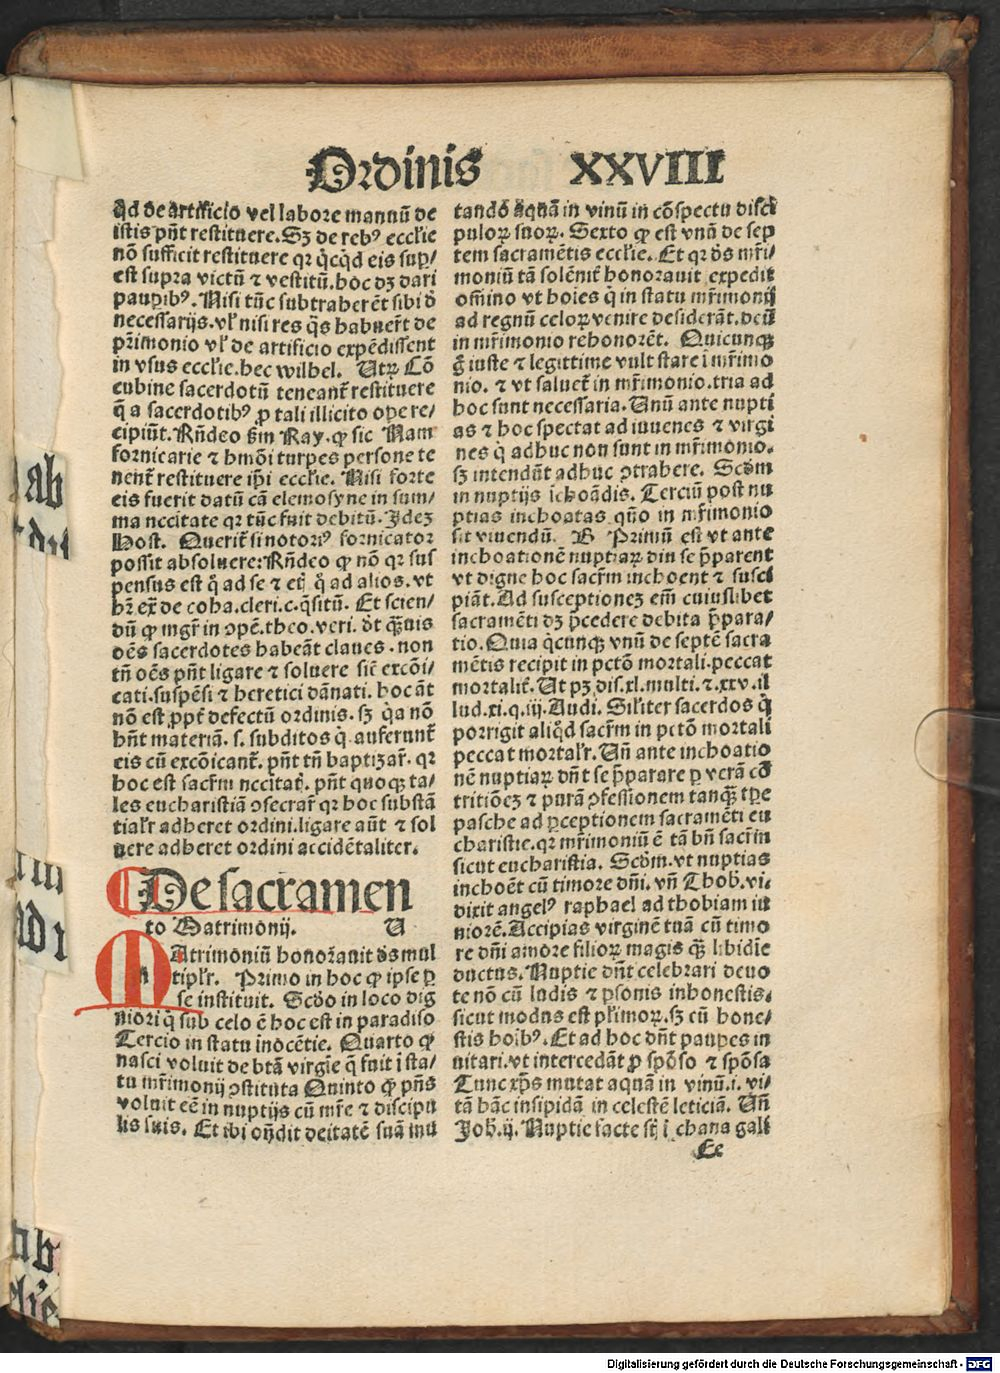 Ordinis XXVIII
qd de artificio vel labore manuū de
istis pn̄t restituere. Sꝫ de rebꝰ eccl'ie
nō sufficit restituere qꝛ q̇cq̇d eis suꝑ/
est supra victū ⁊ vestitū. hoc dꝫ dari
pauꝑibꝰ. Nisi tūc subtraherēt sibi d̄
necessarijs. vl' nisi res q̄s habuer̄t de
pr̄imonio vl' de artificio expēdissent
in vsus eccl'ie. hec wilhel. Utꝝ Cō
cubine sacerdotū teneant̄ restituere
q̄ a sacerdotibꝰ ꝓ tali illicito oꝑe re/
cipiūt. Rn̄deo ẜm Ray. ꝙ sic Nam
fornicarie ⁊ hmōi turpes persone te
nent̄ restituere ip̄i eccl'ie. Nisi forte
eis fuerit datū cā elemosyne in sum/
ma nccitate qꝛ tūc fuit debitū. Jdeꝫ
Host. Querit̄ si notoriꝰ fornicator
possit absoluere: Rn̄deo ꝙ nō qꝛ sus
pensus est q̊ ad se ⁊ etī q̊ ad alios. vt
hr̄ ex̄ de coha. cleri. c. q̄situ̅. Et scien/
dū ꝙ mgr̄ in ɔpē. theo. veri. dt̄ qꝙ̄uis
oēs sacerdotes habeāt claues. non
tn̄ oēs pn̄t ligare ⁊ soluere sic̄ excōi/
cati. suspēsi ⁊ heretici dānati. hoc āt
nō est ꝓpt̄ defectū ordinis. sꝫ q̇a nō
hn̄t materiā. s. subditos q̇ auferunt̄
eis cū excōicant̄. pn̄t tn̄ baptizar̄. qꝛ
hoc est sacr̄m nccitat̄. pn̄t quoqꝫ ta/
les eucharistiā ɔsecrar̄ qꝛ hoc substā
tial'r adheret ordini. ligare aūt ⁊ sol
uere adheret ordini accidētaliter.
De sacramen
to Matrimonij. A
Matrimoniū honorauit de᷒ mul
tipl'r. Primo in hoc ꝙ ipse ꝑ
se instituit. Scd̄o in loco dig
niori q̇ sub celo ē hoc est in paradiso
Tercio in statu inocētie. Quarto ꝙ
nasci voluit de btā virgīe q̄ fuit ī sta/
tu mr̄imonij ɔstituta Quinto ꝙ pn̄s
voluit eē in nuptijs cū mr̄e ⁊ discipu
lis suis. Et ibi on̄dit deitatē suā mu
tando aquā in vinū in cōspectu disci
puloꝝ suoꝝ. Sexto ꝙ est vnū de sep
tem sacramētis eccl'ie. Et qꝛ dn̄s mr̄i/
moniū tā solēnit̄ honorauit expedit
om̄ino vt hoies q̇ in statu mr̄imonij
ad regnū celoꝝ venire desiderāt. deū
in mr̄imonio rehonorēt. Quicunqꝫ
g̊ iuste ⁊ legittime vult stare ī mr̄imo
nio. ⁊ vt saluet̄ in mr̄imonio. tria ad
hoc sunt necessaria. Unū ante nupti
as ⁊ hoc spectat ad iuuenes ⁊ virgi
nes q̇ adhuc non sunt in mr̄imonio.
sꝫ intendūt adhuc ɔtrahere. Scd̄m
in nuptijs ichoādis. Terciū post nu
ptias inchoatas qūo in mr̄imonio
sit viuendū. B Primū est vt ante
inchoationē nuptiaꝝ diu se p̄parent
vt digne hoc sacr̄m inchoent ⁊ susci
piāt. Ad susceptioneꝫ em̄ cuiuslibet
sacramēti dꝫ p̄cedere debita p̄para/
tio. Quia q̇cunqꝫ vnū de septē sacra
mētis recipit in pctō mortali. peccat
mortalit̄. Ut pꝫ dis. xl. multi. ⁊. xxv. il
lud. xi. q. iij. Audi. Sil'iter sacerdos q̇
porrigit aliq̊d sacr̄m in pctō mortali
peccat mortal'r. Un̄ ante inchoatio
nē nuptiaꝝ dn̄t se p̄parare ꝑ verā cō
tritiōeꝫ ⁊ purā ɔfessionem tanqꝙ̄ tꝑe
pasche ad ꝑceptionem sacramēti eu
charistie. qꝛ mr̄imoniū ē tā bn̄ sacr̄m
sicut eucharistia. Scd̄m. vt nuptias
inchoēt cū timore dn̄i. vn̄ Thob. vi.
dixit angelꝰ raphael ad thobiam iu
niorē. Accipias virginē tuā cū timo
re dn̄i amore filioꝝ magis qꝙ̄ libidīe
ductus. Nuptie dn̄t celebrari deuo
te nō cū ludis ⁊ ꝑsonis inhonestis.
sicut modus est pl'imoꝝ. sꝫ cū hone/
stis hoībꝰ. Et ad hoc dn̄t pauꝑes in
uitari. vt intercedāt ꝓ spōso ⁊ spōsa
Tunc xp̄s mutat aquā in vinū. i. vi/
tā hāc insipidā in celestē leticiā. Un̄
Joh. ij. Nuptie facte st̄ ī chana gali
Ee
ab
Digitalisierung gefördert durch die Deutsche Forschungsgemeinschaft - DFG